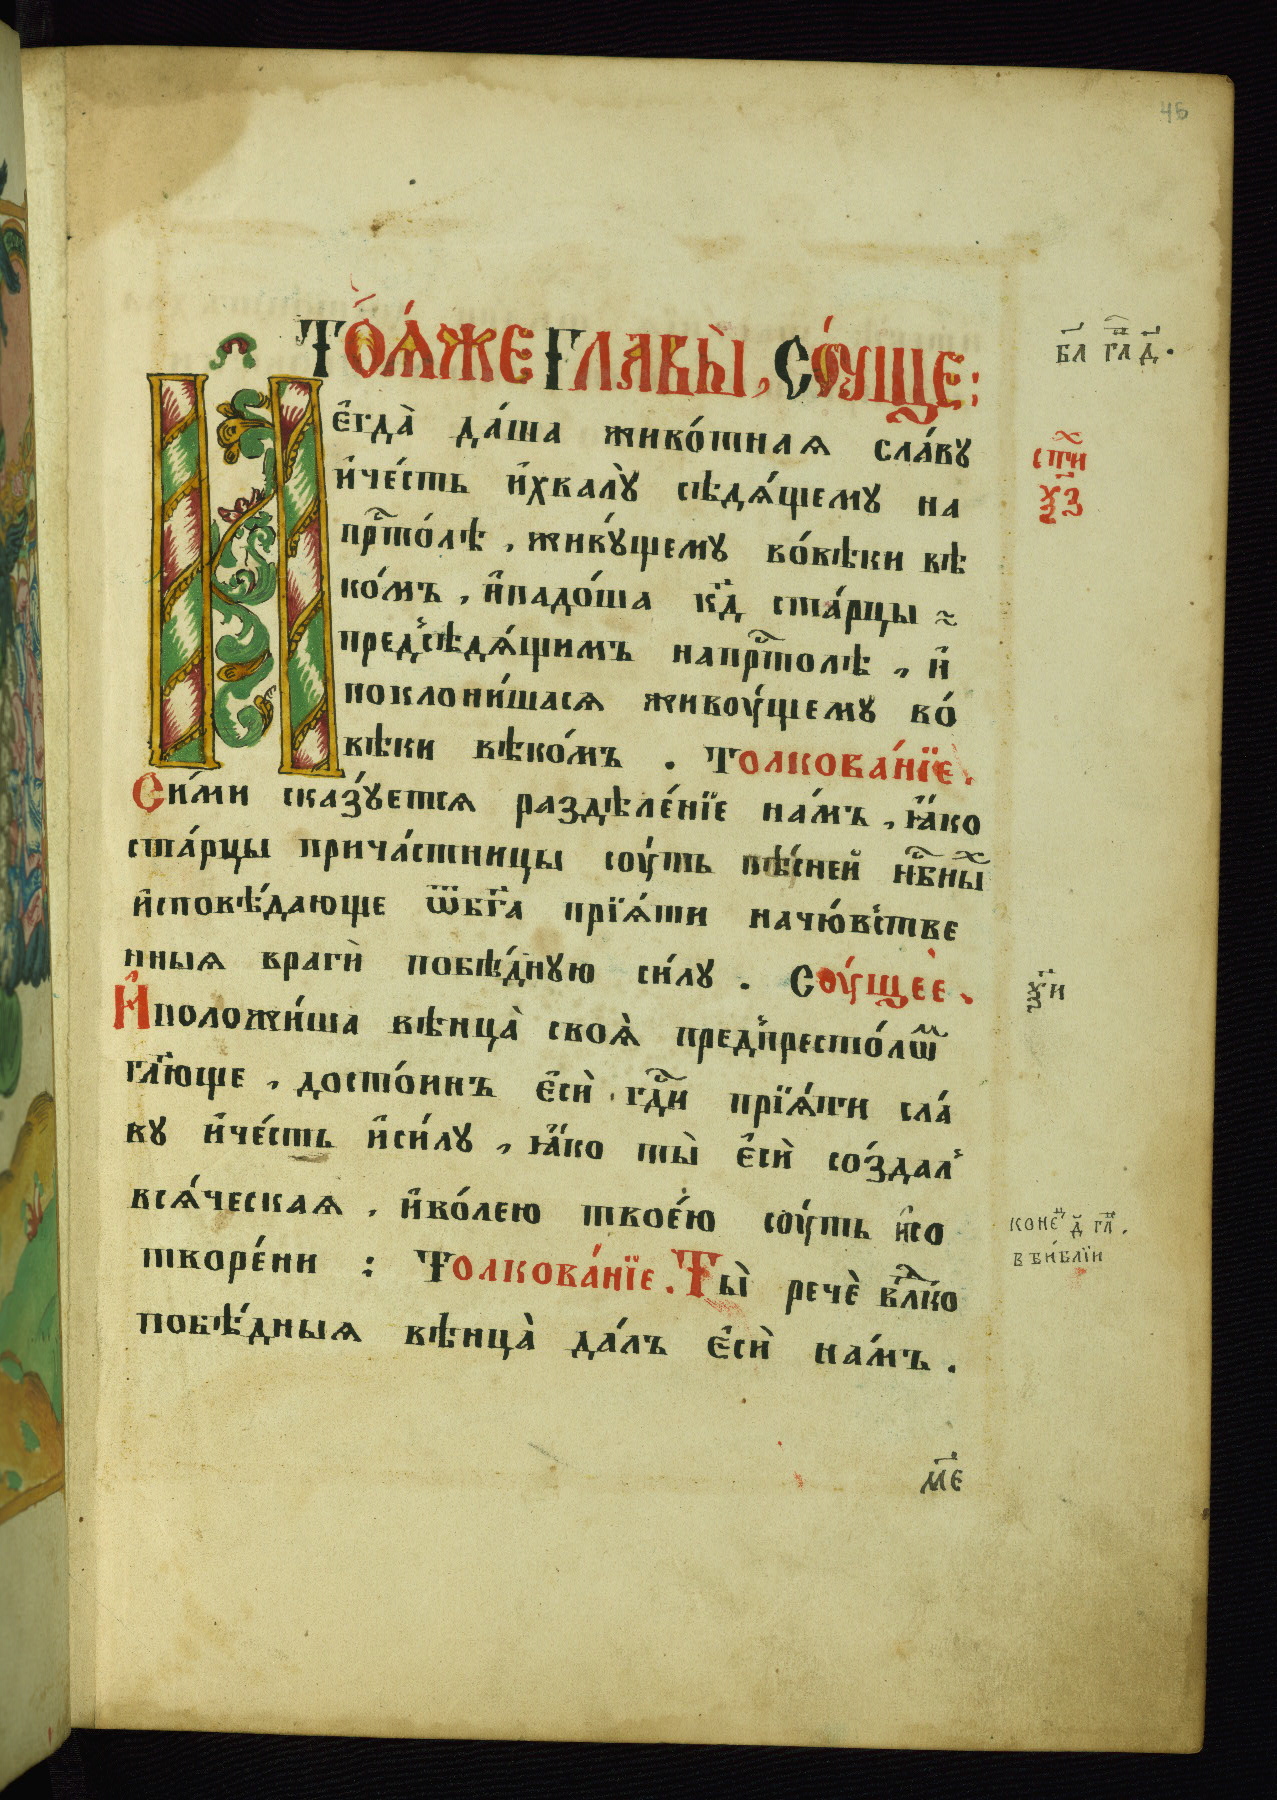 45
Тоѧ́же главы̀, соу́щее:
бл҃ гл҃а д҃.
И є҆гда̀ да́ша живо́тнаѧ сла́ву
и҆че́сть и҆хвалꙋ̀ сѣдѧ́щемꙋ на
прⷭ҇то́лѣ, живꙋ́щемꙋ во́вѣки вѣ
ко́мъ, и҆падо́ша к҃д ста́рцы
предⸯсѣдѧ́щимъ напрⷭ҇толѣ, и҆
поклони́шасѧ живоу́щемꙋ во́
вѣки вѣко́мъ. Толкова́нїе.
Си́ми ска́зꙋетсѧ раздѣле́нїе на́мъ, ꙗ҆́ко
ста́рцы прича́стницы соу́ть пѣ́сней нбⷭ҇ныⷯ
и҆сповѣ́дающе ѿбг҃а прїѧ́ти начю́вⸯстве
нныѧ враги̑ побѣ́днꙋю си́лꙋ. Соу́щее.
И҆положи́ша вѣнца̀ своѧ̀ предⸯпресто́лѡⷨ
гл҃юще, досто́инъ є҆сѝ гдⷭ҇и прїѧ́ти сла́
вꙋ и҆че́сть и҆си́лꙋ, ꙗ҆́ко ты̀ є҆сѝ со́здалⸯ
всѧ́ческаѧ, и҆во́лею твое́ю соу́ть и҆со
творе́ни : Толкова́нїе. Ты̀ речѐ влⷣко
побѣ́дныѧ вѣнца̀ да́лъ є҆сѝ на́мъ.
ꙋ҃з
ꙋ҃и
конеⷰ҇ д҃ гл҃.
в би́блїи
м҃е